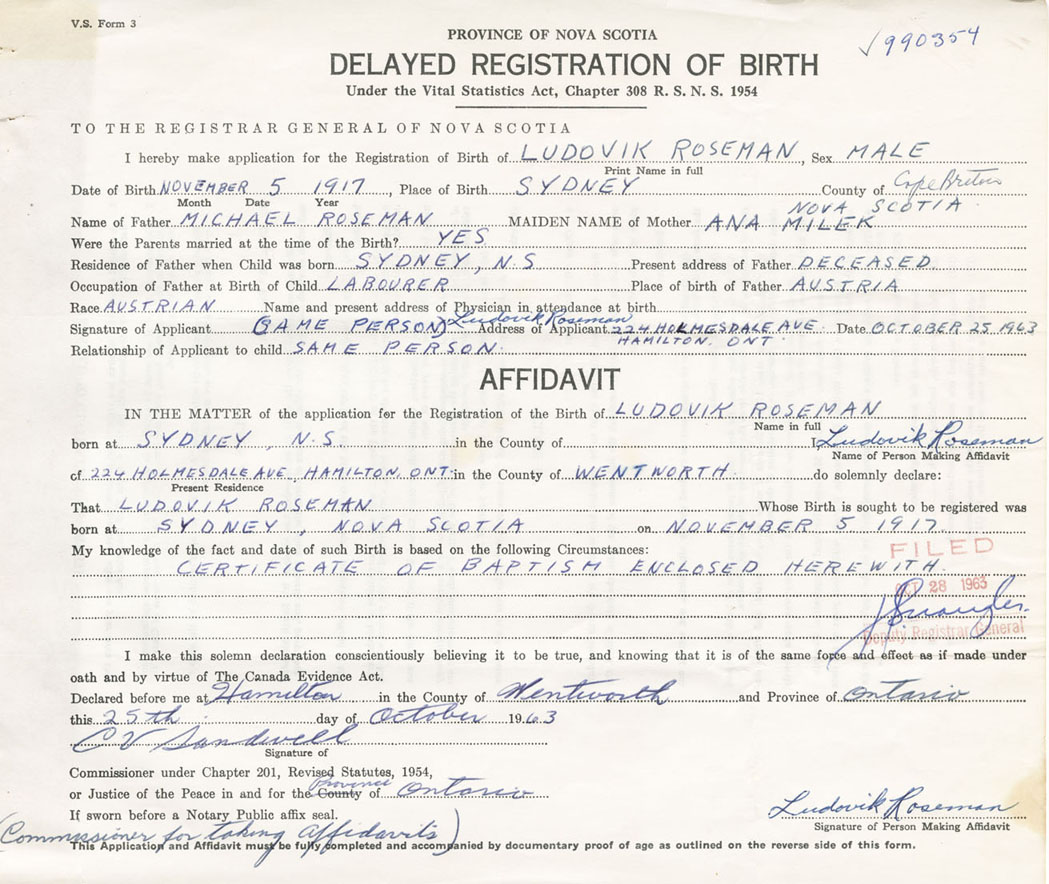 V.S. Form 3
√990354
PROVINCE OF NOVA SCOTIA
DELAYED REGISTRATION OF BIRTH
Under the Vital Statistics Act, Chapter 308 R. S. N. S. 1954
TO THE REGISTRAR GENERAL OF NOVA SCOTIA
I hereby make application for the Registration of Birth of LUDOVIK ROSEMAN, Sex MALE
Print Name in full
Date of Birth NOVEMBER 5 1917, Place of Birth SYDNEY County of Cape Breton
Month Date Year NOVA SCOTIA
Name of Father MICHAEL ROSEMAN MAIDEN NAME of Mother ANA MILEK
Were the Parents married at the time of the Birth? YES
Residence of Father when Child was born SYDNEY, N.S Present address of Father DECEASED
Occupation of Father at Birth of Child LABOURER Place of birth of Father AUSTRIA
Race AUSTRIAN Name and present address of Physician in attendance at birth
Signature of Applicant (SAME PERSON) Ludovik Roseman Address of Applicant 224 HOLMESDALE AVE Date OCTOBER 25 1963
HAMILTON, ONT
Relationship of Applicant to child SAME PERSON
AFFIDAVIT
IN THE MATTER of the application for the Registration of the Birth of LUDOVIK ROSEMAN
Name in full
born at SYDNEY, N.S. in the County of I, Ludovik Roseman
Name of Person Making Affidavit
of 224 HOLMESDALE AVE, HAMILTON, ONT. in the County of WENTWORTH do solemnly declare:
Present Residence
That LUDOVIK ROSEMAN Whose Birth is sought to be registered was
born at SYDNEY, NOVA SCOTIA on NOVEMBER 5 1917
My knowledge of the fact and date of such Birth is based on the following Circumstances:
FILED
CERTIFICATE OF BAPTISM ENCLOSED HEREWITH.
OCT 28 1963
Deputy Registrar General
I make this solemn declaration conscientiously believing it to be true, and knowing that it is of the same force and effect as if made under
oath and by virtue of The Canada Evidence Act.
Declared before me at Hamilton in the County of Wentworth and Province of Ontario
this 25th day of October 1963
C V Sandwell
Signature of
Commissioner under Chapter 201, Revised Statutes, 1954,
province
or Justice of the Peace in and for the County of Ontario
Ludovik Roseman
If sworn before a Notary Public affix seal.
Signature of Person Making Affidavit
(Commissioner for taking affidavits)
This Application and Affidavit must be fully completed and accompanied by documentary proof of age as outlined on the reverse side of this form.